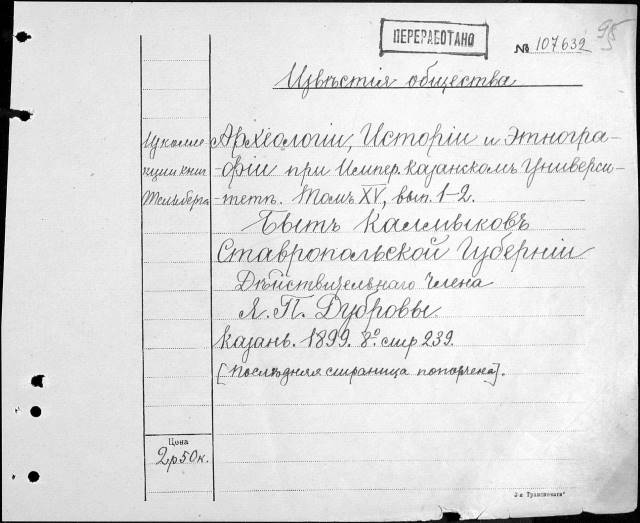 ПЕРЕРАБОТАНО
№ 107632
95
Извѣстія общества
Археологіи, Исторіи и Этногра-
фіи при Импер. Казанскомъ Универси-
тетѣ. Томъ XV, вып. 1-2.
Бытъ Калмыковъ
Ставропольской Губерніи
Дѣйствительнаго Члена
Я. П. Дубровы.
Казань. 1899. 8º стр 239.
[Послѣдняя страница попорчена].
Из коллек
кции книг
Цена
2 р 50 к.